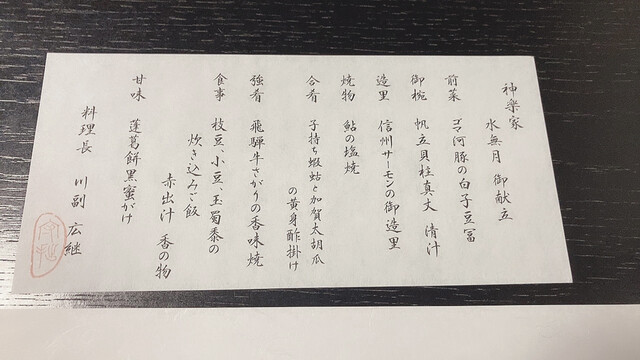 神楽家
水無月 御献立
前菜 ゴマ河豚の白子豆冨
御椀 帆立貝柱真丈 清汁
造里 信州サーモンの御造里
焼物 鮎の塩焼
合肴 子持ち蝦蛄と加賀太胡瓜
の黄身酢掛け
強肴 飛騨牛さがりの香味焼
食事 枝豆、小豆、玉蜀黍の
炊き込みご飯
赤出汁 香の物
甘味 蓮葛餅黒蜜がけ
料理長 川副 広継